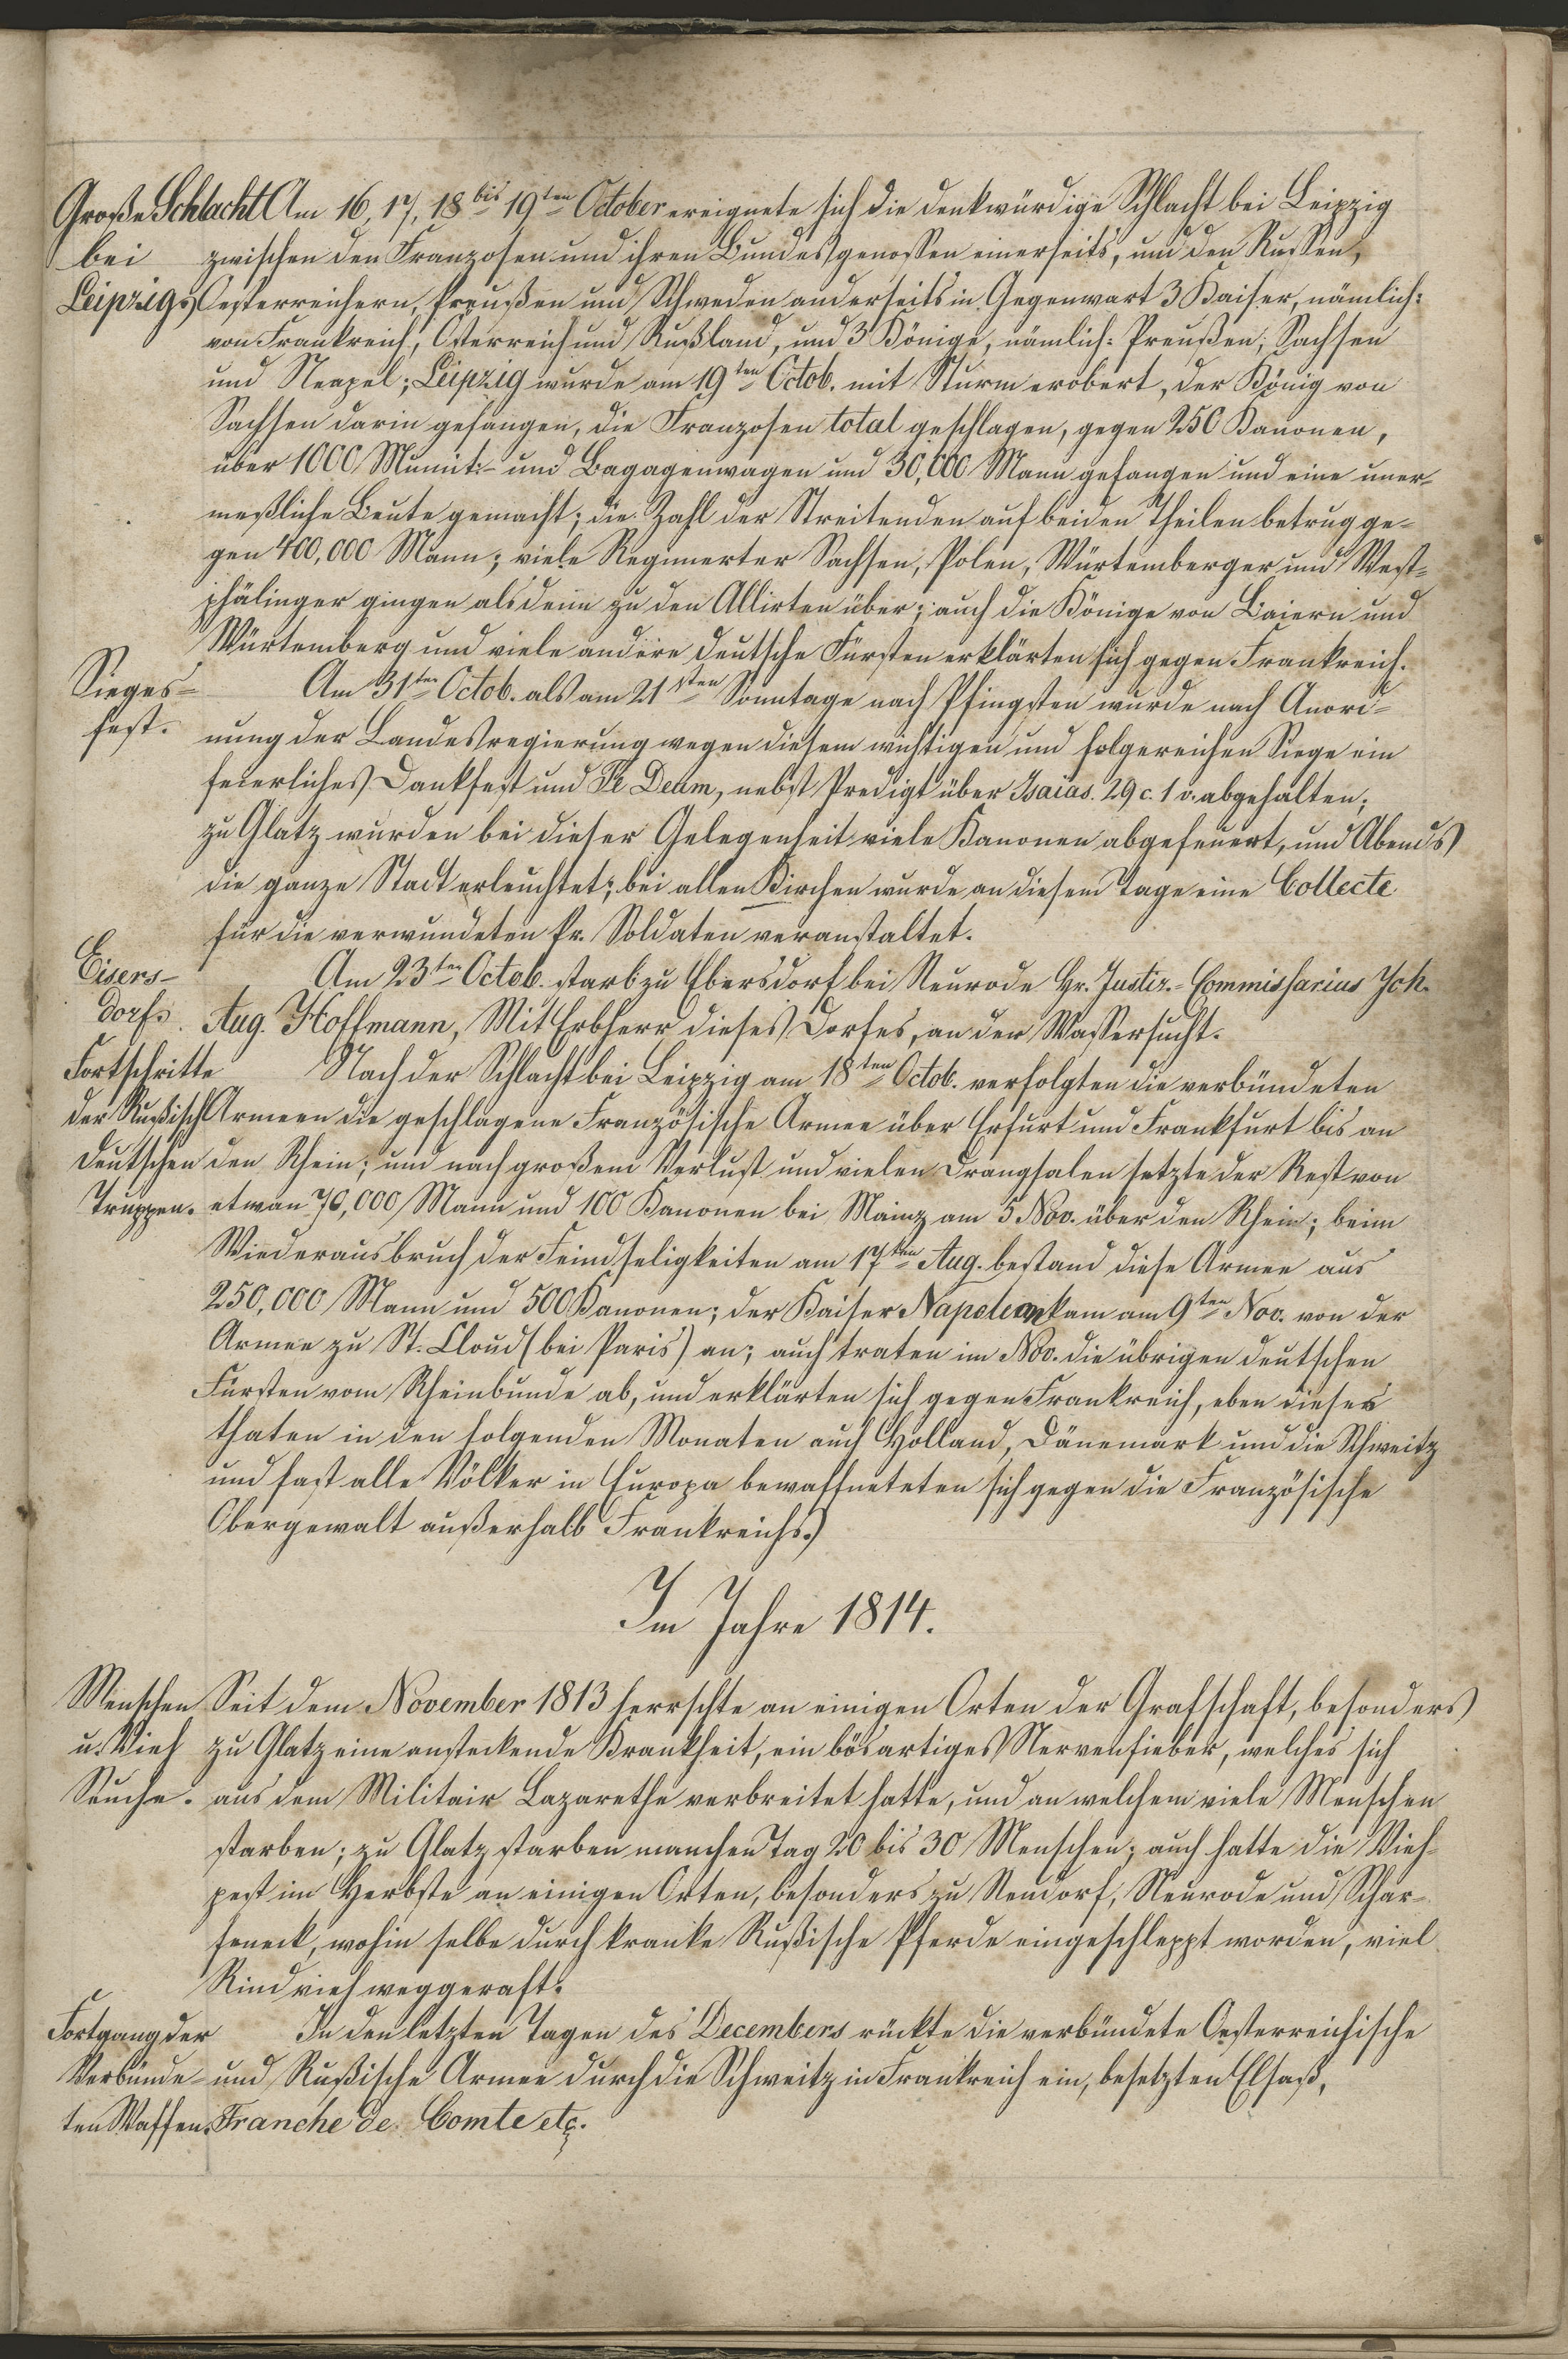 Große Schlacht Am 16, 17, 18 bis 19ten October ereignete sich die denkwürdige Schlacht bei Leipzig
bei zwischen den Franzosen und ihren Bundesgenossen einerseits, und den Russen,
Leipzig. Oesterreichern, Preußen und Schweden anderseits in Gegenwart 3 Kaiser, nämlich:
von Frankreich, Österreich und Rußland, und 3 Könige, nämlich: Preußen, Sachsen
und Neapel; Leipzig wurde am 19ten Octob. mit Sturm erobert, der König von
Sachsen darin gefangen, die Franzosen total geschlagen, gegen 250 Kanonen,
über 1000 Munit:- und Bagagenwagen und 30,000 Mann gefangen und eine uner-
meßliche Beute gemacht; die Zahl der Streitenden auf beiden Theilen betrug ge-
gen 400,000 Mann; viele Regimenter Sachsen, Polen, Würtemberger und West-
phälinger gingen alsdenn zu den Allirten über; auch die Könige von Baiern und
Würtemberg und viele andere deutsche Fürsten erklärten sich gegen Frankreich.
Sieges- Am 31ten Octob. als am 21sten Sonntage nach Pfingsten wurde nach Anord-
fest. nung der Landesregierung wegen diesem wichtigen und folgereichen Siege ein
feierliches Dankfest und Te Deum, nebst Predigt über Isaias. 29 c. 1 v. abgehalten;
zu Glatz wurden bei dieser Gelegenheit viele Kanonen abgefeuert, und Abends
die ganze Stadt erleuchtet; bei allen Kirchen wurde an diesem Tage eine Collecte
für die verwundeten Pr. Soldaten veranstaltet.
Eisers- Am 23ten Octob. starb zu Ebersdorf bei Neurode Hr. Justiz.-Commissarius Joh.
dorf. Aug. Hoffmann, Mit Erbherr dieses Dorfes, an der Wassersucht.
Fortschritte Nach der Schlacht bei Leipzig am 18ten Octob. verfolgten die verbündeten
der Rußisch Armeen die geschlagene Französische Armee über Erfurt und Frankfurt bis an
deutschen den Rhein; und nach großem Verlust und vielen Drangsalen setzte der Rest von
Truppen. etwan 70,000 Mann und 100 Kanonen bei Mainz am 5 Nov. über den Rhein; beim
Wiederausbruch der Feindseligkeiten am 17ten Aug. bestand diese Armee aus
250,000 Mann und 500 Kanonen; der Kaiser Napoleon kam am 9ten Nov. von der
Armee zu St. Cloud (bei Paris) an; auch traten im Nov. die übrigen deutschen
Fürsten vom Rheinbunde ab, und erklärten sich gegen Frankreich, eben dieses
thaten in den folgenden Monaten auch Holland, Dänemark und die Schweitz
und fast alle Völker in Europa bewaffneteten sich gegen die Französische
Obergewalt außerhalb Frankreichs.
Im Jahre 1814.
Menschen Seit dem November 1813 herrschte an einigen Orten der Grafschaft, besonders
u. Vieh zu Glatz eine ansteckende Krankheit, ein bösartiges Nervenfieber, welches sich
Seuche. aus dem Militair Lazarethe verbreitet hatte, und an welchem viele Menschen
starben; zu Glatz starben manchen Tag 20 bis 30 Menschen; auch hatte die Vieh-
pest im Herbste an einigen Orten, besonders zu Neudorf, Neurode und Schar-
feneck, wohin selbe durch kranke Rußische Pferde eingeschleppt worden, viel
Rindvieh weggeraft.
Fortgang der In den letzten Tagen des Decembers rückte die verbündete Oesterreichische
Verbünde- und Rußische Armee durch die Schweitz in Frankreich ein, besetzten Elsaß,
ten Waffen. Franche de Comte etc.